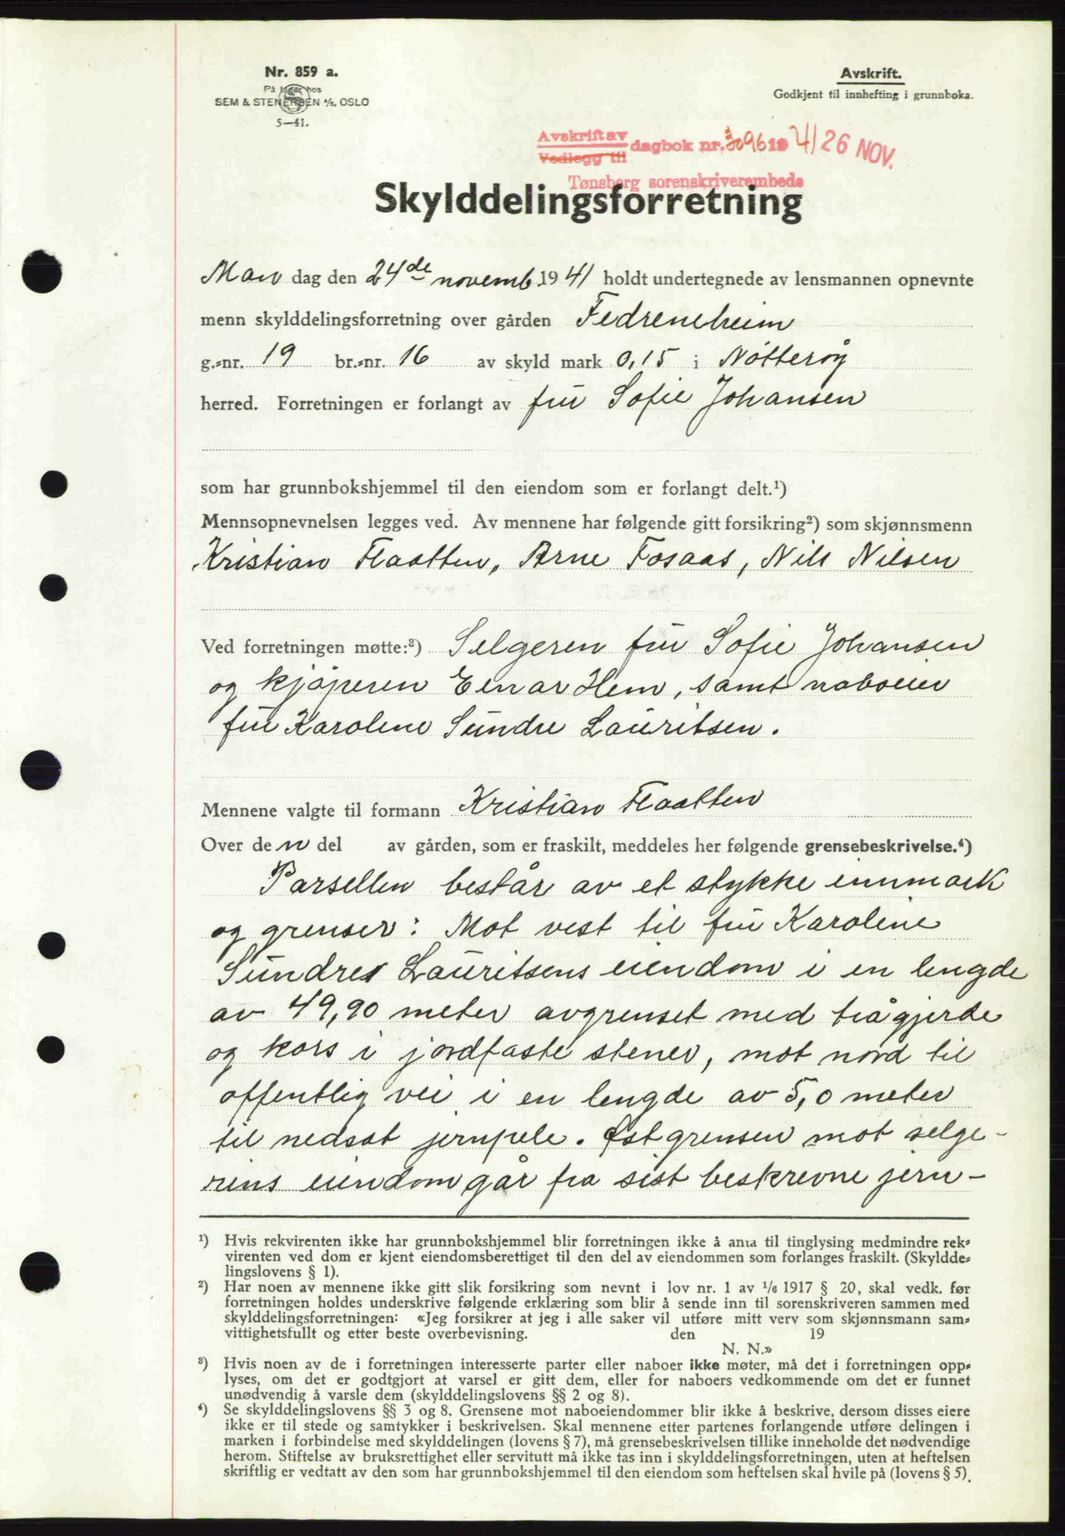 Nr. 859 a.
På lager hos
SEM & STENERSEN A/S, OSLO
5—41.
Avskrift.
Godkjent til innhefting i grunnboka.
Avskrift av
Vedlegg til
dagbok nr. 3096 19 41 26 NOV.
Tønsberg sorenskriverembede
Skylddelingsforretning
Man dag den 24de novemb. 1941 holdt undertegnede av lensmannen opnevnte
menn skylddelingsforretning over gården Fedreneheim
g.-nr. 19 br.-nr. 16 av skyld mark 0,15 i Nøtterøy
herred. Forretningen er forlangt av fru Sofie Johansen
som har grunnbokshjemmel til den eiendom som er forlangt delt.¹)
Mennsopnevnelsen legges ved. Av mennene har følgende gitt forsikring²) som skjønnsmenn
Kristian Flaatten, Arne Fosaas, Nils Nilsen
Ved forretningen møtte:³) Selgeren fru Sofie Johansen
og kjøperen Einar Hem, samt naboeier
fru Karoline Sundre Lauritsen.
Mennene valgte til formann Kristian Flaatten
Over den del av gården, som er fraskilt, meddeles her følgende grensebeskrivelse.⁴)
Parsellen består av et stykke innmark
og grenser: Mot vest til fru Karoline
Sundres Lauritsens eiendom i en lengde
av 49,90 meter avgrenset med trågjerde
og kors i jordfaste stener, mot nord til
offentlig vei i en lengde av 5,0 meter
til nedsat jernpele. Østgrensen mot selge-
rens eiendom går fra sist beskrevne jern-
¹) Hvis rekvirenten ikke har grunnbokshjemmel blir forretningen ikke å anta til tinglysing medmindre rek-
virenten ved dom er kjent eiendomsberettiget til den del av eiendommen som forlanges fraskilt. (Skyldde-
lingslovens § 1).
²) Har noen av mennene ikke gitt slik forsikring som nevnt i lov nr. 1 av 1/6 1917 § 20, skal vedk. før
forretningen holdes underskrive følgende erklæring som blir å sende inn til sorenskriveren sammen med
skylddelingsforretningen: «Jeg forsikrer at jeg i alle saker vil utføre mitt verv som skjønnsmann sam-
vittighetsfullt og etter beste overbevisning. den 19
N. N.»
³) Hvis noen av de i forretningen interesserte parter eller naboer ikke møter, må det i forretningen opp-
lyses, om det er godtgjort at varsel er gitt dem, eller for naboers vedkommende om det er funnet
unødvendig å varsle dem (skylddelingslovens §§ 2 og 8).
⁴) Se skylddelingslovens §§ 3 og 8. Grensene mot naboeiendommer blir ikke å beskrive, dersom disses eiere
ikke er til stede og samtykker i beskrivelsen. Skal mennene etter partenes forlangende utføre delingen i
marken i forbindelse med skylddelingen (lovens § 7), må grensebeskrivelsen tillike inneholde det nødvendige
herom. Stiftelse av bruksrettighet eller servitutt må ikke tas inn i skylddelingsforretningen, uten at heftelsen
skriftlig er vedtatt av den som har grunnbokshjemmel til den eiendom som heftelsen skal hvile på (lovens § 5).